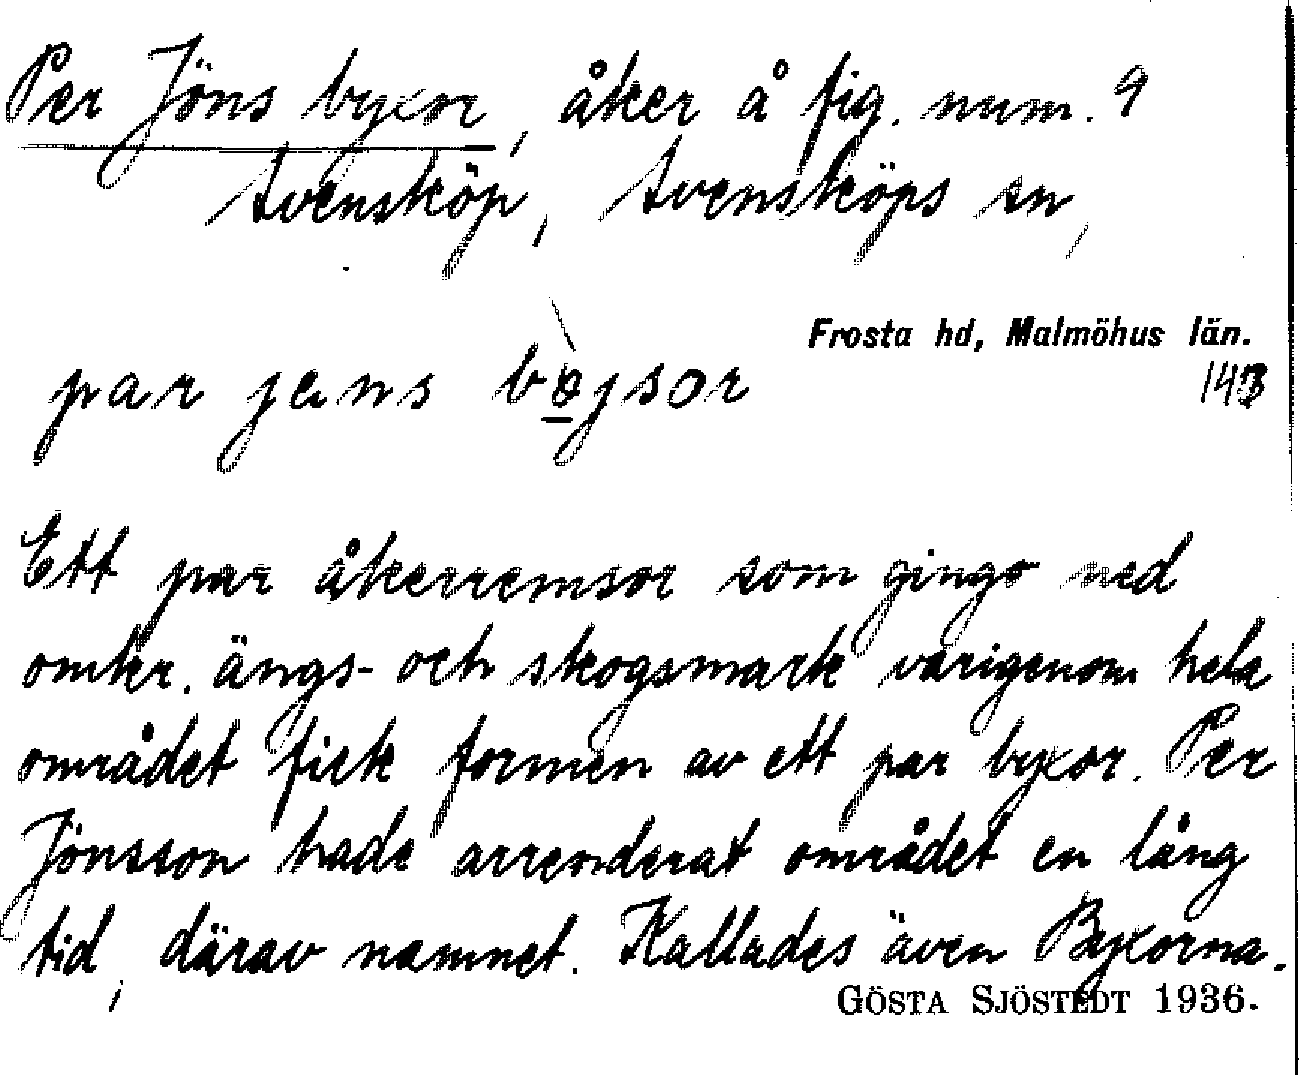 Per Jöns byxor, åker å fig. num. 9
Svensköp, Svensköps sn,
Frosta hd, Malmöhus län.
par jens bøjsor
Ett par åkerremsor som gingo ned
omkr. ängs- och skogsmark varigenom hela
området fick formen av ett par byxor. Per
Jönsson hade arrenderat området en lång
tid, därav namnet. Kallades även Byxorna.
GÖSTA SJÖSTEDT 1936.